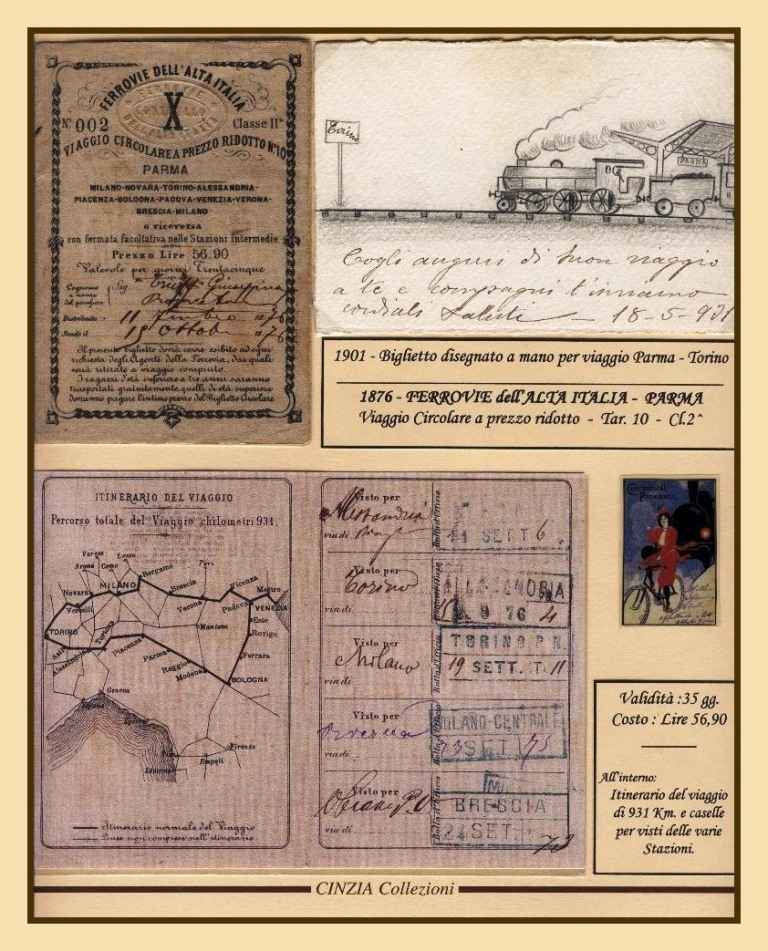 FERROVIE DELL'ALTA ITALIA
X
N° 002 Classe IIª
VIAGGIO CIRCOLARE A PREZZO RIDOTTO N°10
PARMA
MILANO-NOVARA-TORINO-ALESSANDRIA-
PIACENZA-BOLOGNA-PADOVA-VENEZIA-VERONA-
BRESCIA-MILANO
o viceversa
con fermata facoltativa nelle Stazioni intermedie
Prezzo Lire 56.90
Valevole per giorni trentacinque
Cognome e nome del possessore Sig.
Distribuito 11 1876
Scade il 15 Ottob 1876
Il presente biglietto dovrà essere esibito ad ogni
richiesta degli Agenti della Ferrovia, dai quali
sarà ritirato a viaggio compiuto.
I ragazzi d'età inferiore a tre anni saranno
trasportati gratuitamente, quelli d'età superiore
dovranno pagare l'intiero prezzo del Biglietto Circolare
Torino
Cogli auguri di buon viaggio
a te e compagni t'inviamo
cordiali saluti - 18-5-931
1901 - Biglietto disegnato a mano per viaggio Parma - Torino
1876 - FERROVIE dell'ALTA ITALIA - PARMA
Viaggio Circolare a prezzo ridotto - Tar. 10 - Cl.2^
ITINERARIO DEL VIAGGIO
Percorso totale del Viaggio chilometri 931.
Varese
Lecco
Arona Como
Bergamo
MILANO
Novara
Brescia
Vicenza
Mestre
Vercelli
Verona
Padova
VENEZIA
TORINO
Mantova
Este
Rovigo
Asti
Tortona
Piacenza
Alessandria
Parma
Ferrara
Reggio
Modena
BOLOGNA
Genova
Savona
Spezia
Firenze
Empoli
Itinerario normale del Viaggio
Linee non comprese nell'itinerario.
Visto per
Alessandria
via di
11 SETT 6
Visto per
Torino
via di
ALESSANDRIA
9 76
Visto per
Milano
via di
TORINO P.N.
19 SETT. T. 11
Visto per
Brescia
via di
MILANO-CENTRALE
23 SET 75
Visto per
via di
BRESCIA
24 SET.
Bollo d'Ufficio
Validità :35 gg.
Costo : Lire 56,90
All'interno:
Itinerario del viaggio
di 931 Km. e caselle
per visti delle varie
Stazioni.
CINZIA Collezioni